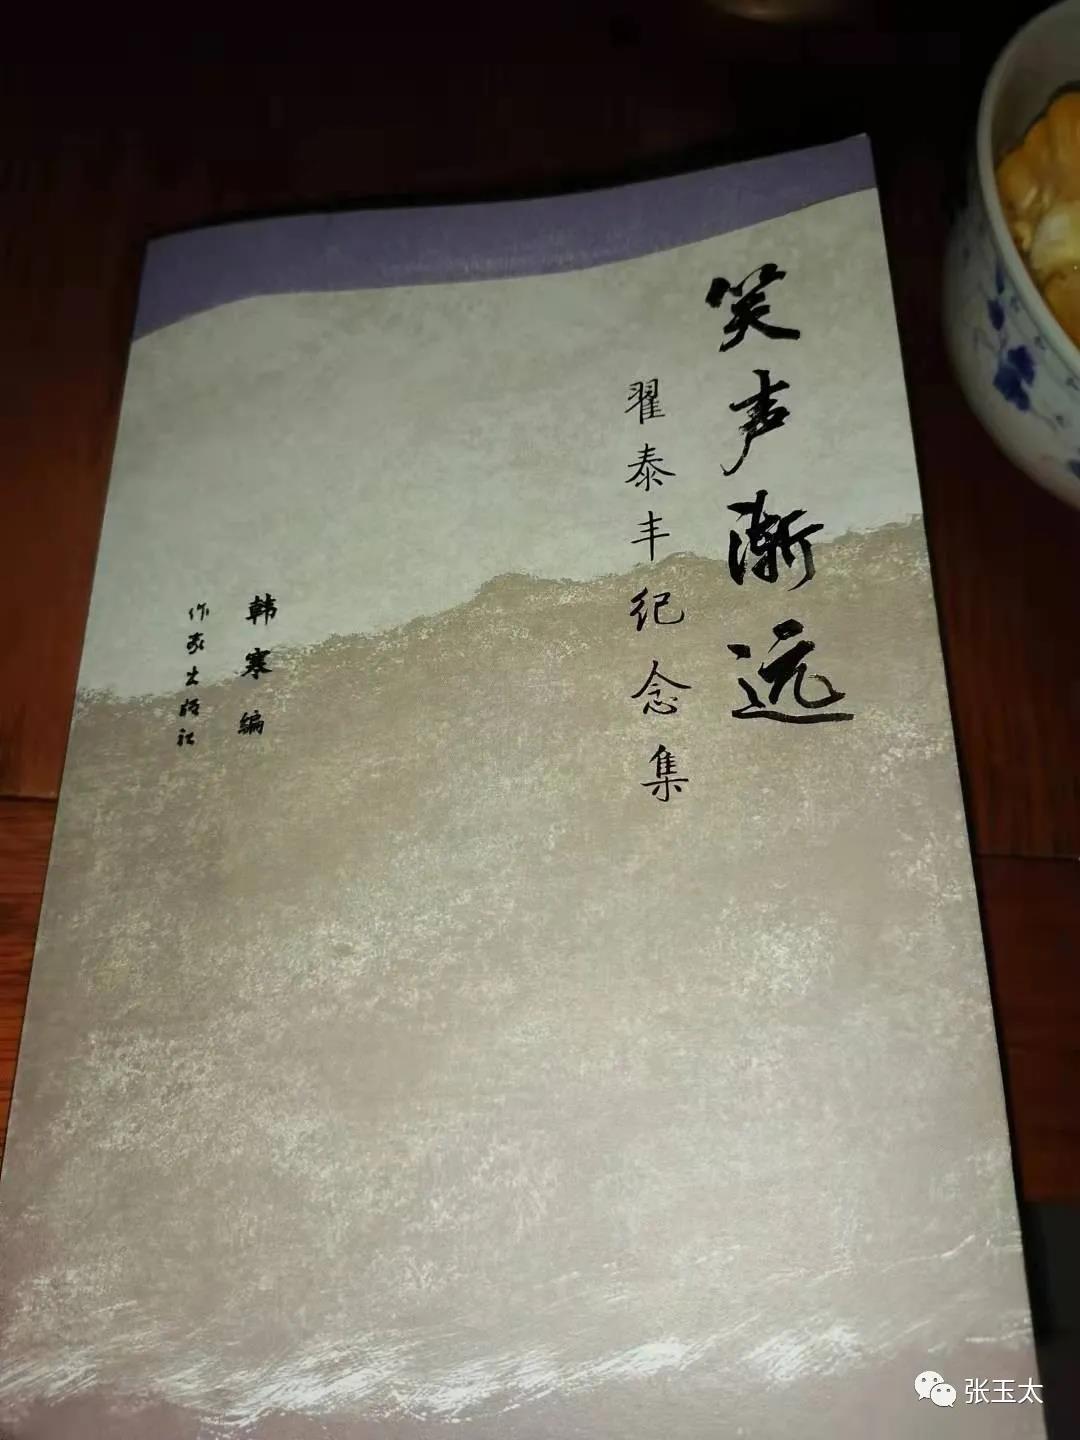 笑声渐远
翟泰丰纪念集
韩寒编
作家出版社
张玉太